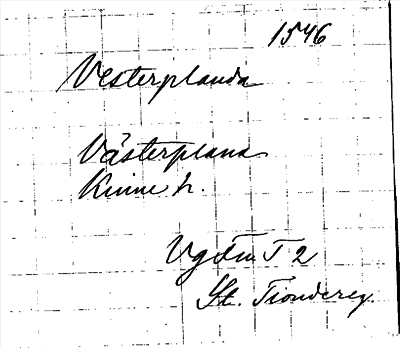 1546
Vesterplanda
Västerplana
Kinne h.
Vg Fn T 2
St. Tiondereg.